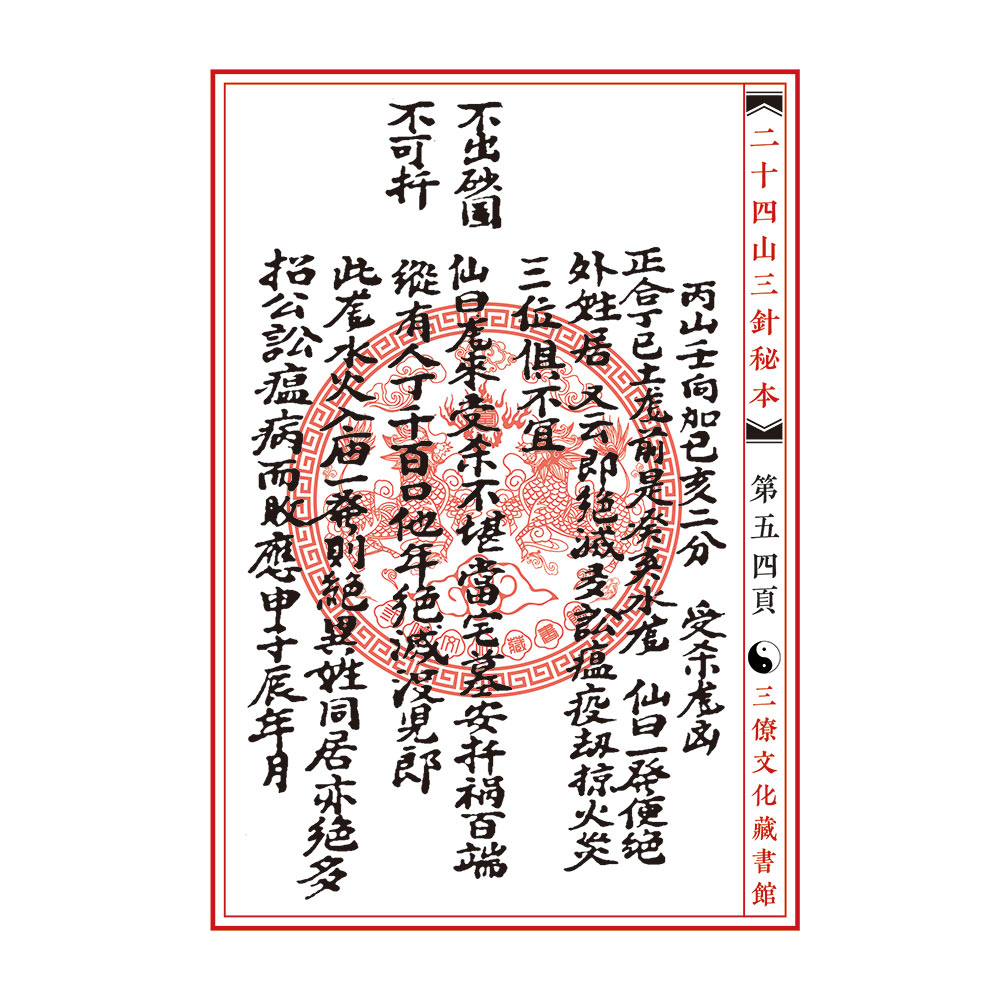 《二十四山三針秘本》 第五四頁 三僚文化藏書館
丙山壬向加巳亥二分 受杀龙凶
正合丁巳土龙前是癸亥水龙 仙曰一發便绝
外姓居 又云即绝滅多訟瘟疫劫掠火災
三位俱不宜
不出砂国
仙曰龙来受杀不堪當宅墓安扦禍百端
不可扦
縱有人丁千百口他年绝滅没兒郎
此龙水火入庙一發则绝異姓同居亦绝多
招公訟瘟病而敗應申子辰年月